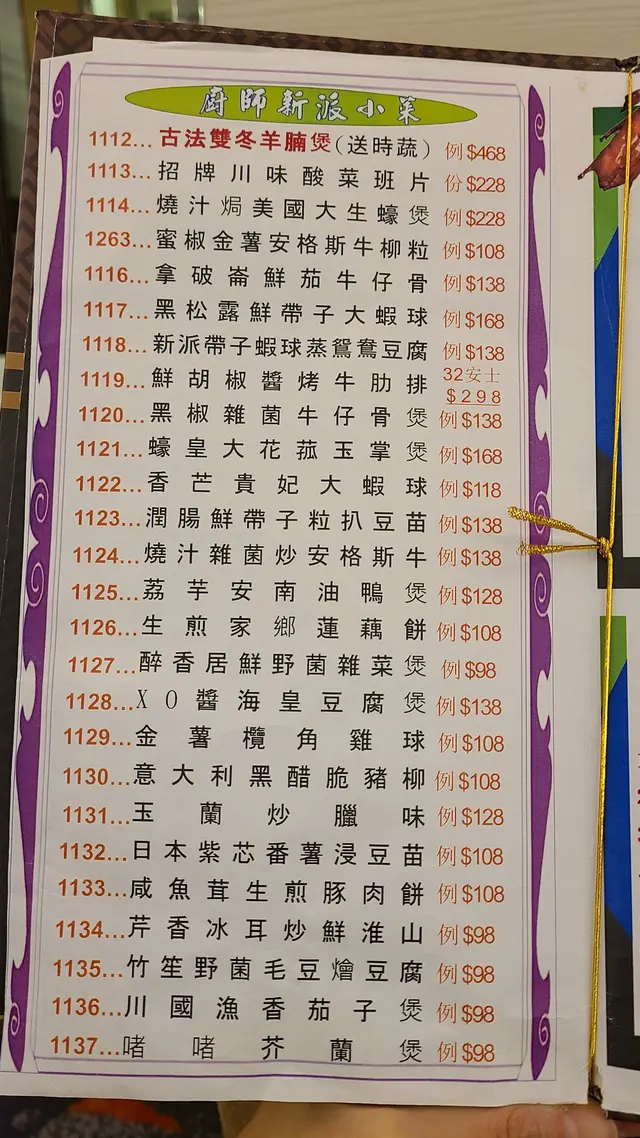 廚師新派小菜
1112...古法雙冬羊腩煲(送時蔬) 例$468
1113...招牌川味酸菜班片 份$228
1114...燒汁焗美國大生蠔煲 例$228
1263...蜜椒金薯安格斯牛柳粒 例$108
1116...拿破崙鮮茄牛仔骨 例$138
1117...黑松露鮮帶子大蝦球 例$168
1118...新派帶子蝦球蒸鴛鴦豆腐 例$138
1119...鮮胡椒醬烤牛肋排 32安士$298
1120...黑椒雜菌牛仔骨煲 例$138
1121...蠔皇大花菰玉掌煲 例$168
1122...香芒貴妃大蝦球 例$118
1123...潤腸鮮帶子粒扒豆苗 例$138
1124...燒汁雜菌炒安格斯牛 例$138
1125...荔芋安南油鴨煲 例$128
1126...生煎家鄉蓮藕餅 例$108
1127...醉香居鮮野菌雜菜煲 例$98
1128...XO醬海皇豆腐煲 例$138
1129...金薯欖角雞球 例$108
1130...意大利黑醋脆豬柳 例$108
1131...玉蘭炒臘味 例$128
1132...日本紫芯番薯浸豆苗 例$108
1133...咸魚茸生煎豚肉餅 例$108
1134...芹香冰耳炒鮮淮山 例$98
1135...竹笙野菌毛豆燴豆腐 例$98
1136...川國漁香茄子煲 例$98
1137...啫啫芥蘭煲 例$98